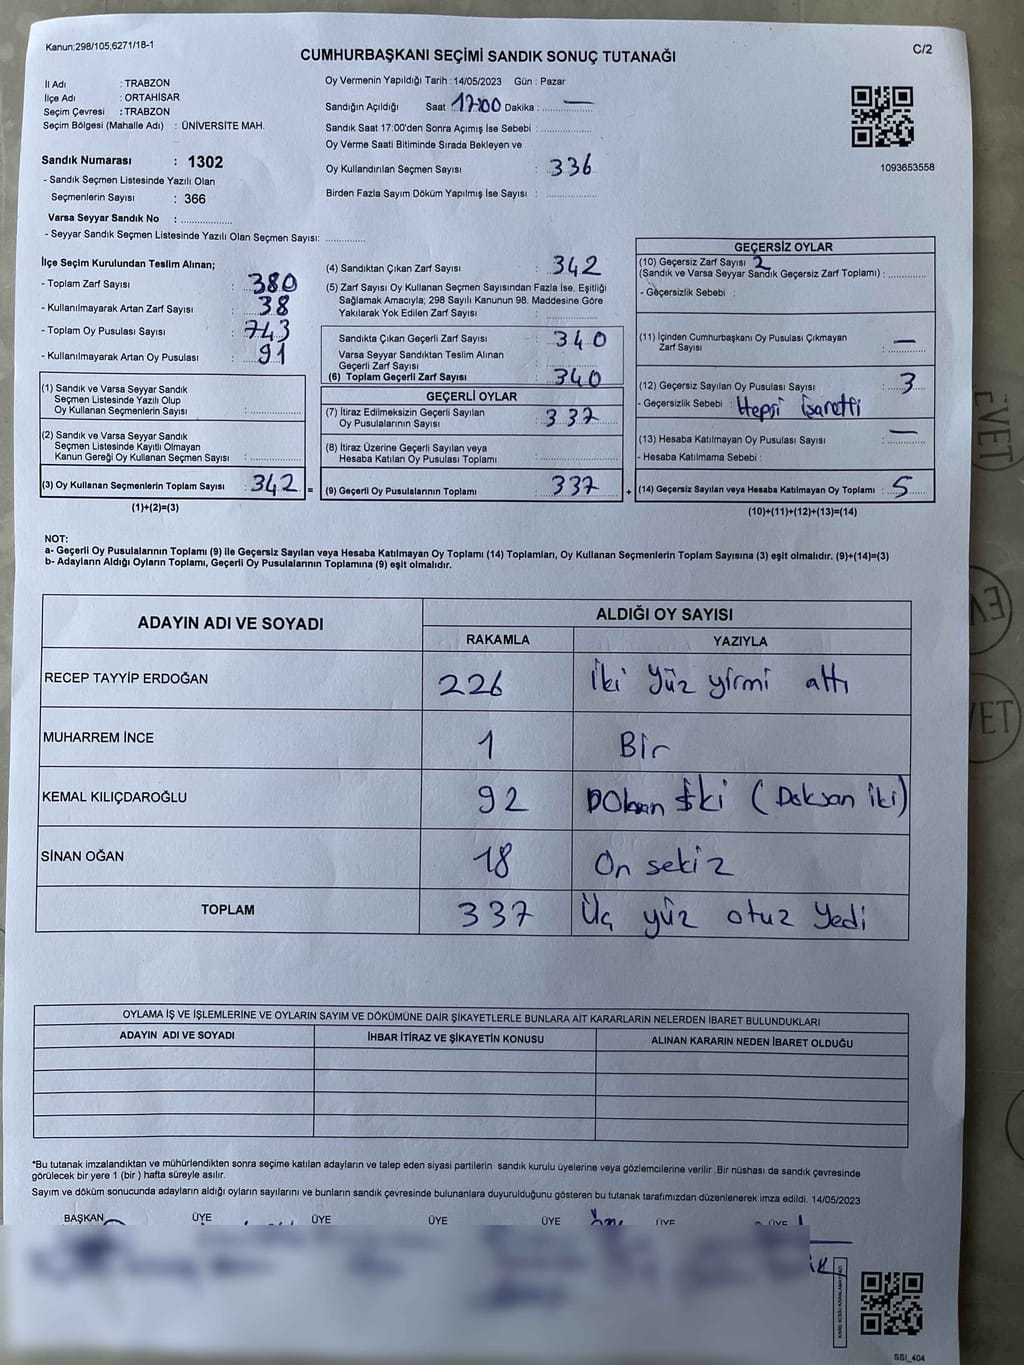 Kanun;298/105;6271/18-1
C/2
CUMHURBAŞKANI SEÇİMİ SANDIK SONUÇ TUTANAĞI
İl Adı : TRABZON
İlçe Adı : ORTAHİSAR
Seçim Çevresi : TRABZON
Seçim Bölgesi (Mahalle Adı) : ÜNİVERSİTE MAH.
Sandık Numarası : 1302
- Sandık Seçmen Listesinde Yazılı Olan
Seçmenlerin Sayısı : 366
Varsa Seyyar Sandık No : ....................
- Seyyar Sandık Seçmen Listesinde Yazılı Olan Seçmen Sayısı: ...............
Oy Vermenin Yapıldığı Tarih : 14/05/2023 Gün : Pazar
Sandığın Açıldığı Saat 17:00 Dakika : —
Sandık Saat 17:00'den Sonra Açımış İse Sebebi : ....................
Oy Verme Saati Bitiminde Sırada Bekleyen ve
Oy Kullandırılan Seçmen Sayısı : 336
Birden Fazla Sayım Döküm Yapılmış İse Sayısı : ...............
1093653558
İlçe Seçim Kurulundan Teslim Alınan;
- Toplam Zarf Sayısı : 380
- Kullanılmayarak Artan Zarf Sayısı : 38
- Toplam Oy Pusulası Sayısı : 743
- Kullanılmayarak Artan Oy Pusulası : 91
(1) Sandık ve Varsa Seyyar Sandık
Seçmen Listesinde Yazılı Olup
Oy Kullanan Seçmenlerin Sayısı : ...............
(2) Sandık ve Varsa Seyyar Sandık
Seçmen Listesinde Kayıtlı Olmayan
Kanun Gereği Oy Kullanan Seçmen Sayısı : ...............
(3) Oy Kullanan Seçmenlerin Toplam Sayısı : 342 =
(1)+(2)=(3)
(4) Sandıktan Çıkan Zarf Sayısı : 342
(5) Zarf Sayısı Oy Kullanan Seçmen Sayısından Fazla İse, Eşitliği
Sağlamak Amacıyla; 298 Sayılı Kanunun 98. Maddesine Göre
Yakılarak Yok Edilen Zarf Sayısı : ...............
Sandıkta Çıkan Geçerli Zarf Sayısı : 340
Varsa Seyyar Sandıktan Teslim Alınan
Geçerli Zarf Sayısı : ...............
(6) Toplam Geçerli Zarf Sayısı : 340
GEÇERLİ OYLAR
(7) İtiraz Edilmeksizin Geçerli Sayılan
Oy Pusulalarının Sayısı : 337
(8) İtiraz Üzerine Geçerli Sayılan veya
Hesaba Katılan Oy Pusulası Toplamı : ...............
(9) Geçerli Oy Pusulalarının Toplamı : 337 +
GEÇERSİZ OYLAR
(10) Geçersiz Zarf Sayısı 2
(Sandık ve Varsa Seyyar Sandık Geçersiz Zarf Toplamı) : ...............
- Geçersizlik Sebebi :
(11) İçinden Cumhurbaşkanı Oy Pusulası Çıkmayan
Zarf Sayısı : —
(12) Geçersiz Sayılan Oy Pusulası Sayısı : 3
- Geçersizlik Sebebi : Hepsi İşaretli
(13) Hesaba Katılmayan Oy Pusulası Sayısı : —
- Hesaba Katılmama Sebebi :
(14) Geçersiz Sayılan veya Hesaba Katılmayan Oy Toplamı : 5
(10)+(11)+(12)+(13)=(14)
NOT:
a- Geçerli Oy Pusulalarının Toplamı (9) ile Geçersiz Sayılan veya Hesaba Katılmayan Oy Toplamı (14) Toplamları, Oy Kullanan Seçmenlerin Toplam Sayısına (3) eşit olmalıdır. (9)+(14)=(3)
b- Adayların Aldığı Oyların Toplamı, Geçerli Oy Pusulalarının Toplamına (9) eşit olmalıdır.
ADAYIN ADI VE SOYADI
ALDIĞI OY SAYISI
RAKAMLA YAZIYLA
RECEP TAYYİP ERDOĞAN 226 İki Yüz yirmi altı
MUHARREM İNCE 1 Bir
KEMAL KILIÇDAROĞLU 92 İki (Doksan İki)
SİNAN OĞAN 18 On sekiz
TOPLAM 337 Üç yüz otuz Yedi
OYLAMA İŞ VE İŞLEMLERİNE VE OYLARIN SAYIM VE DÖKÜMÜNE DAİR ŞİKAYETLERLE BUNLARA AİT KARARLARIN NELERDEN İBARET BULUNDUKLARI
ADAYIN ADI VE SOYADI İHBAR İTİRAZ VE ŞİKAYETİN KONUSU ALINAN KARARIN NEDEN İBARET OLDUĞU
*Bu tutanak imzalandıktan ve mühürlendikten sonra seçime katılan adayların ve talep eden siyasi partilerin sandık kurulu üyelerine veya gözlemcilerine verilir .Bir nüshası da sandık çevresinde
görülecek bir yere 1 (bir ) hafta süreyle asılır.
Sayım ve döküm sonucunda adayların aldığı oyların sayılarını ve bunların sandık çevresinde bulunanlara duyurulduğunu gösteren bu tutanak tarafımızdan düzenlenerek imza edildi. 14/05/2023
BAŞKAN ÜYE ÜYE ÜYE ÜYE ÜYE ÜYE
SSI_404
EVET
EV
VET